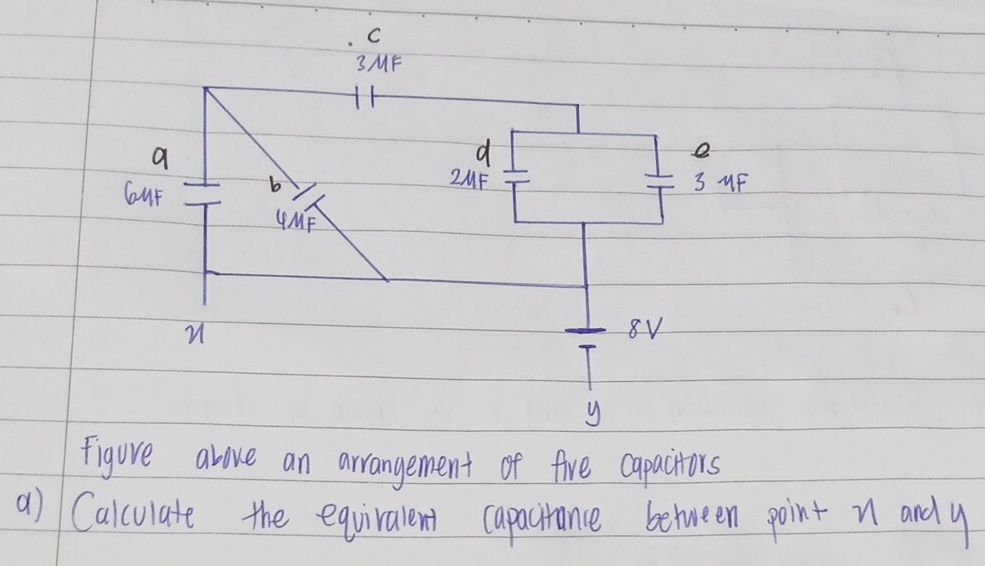 c
3 MF
a
6MF
b
4MF
d
2MF
e
3 MF
8V
x
y
Figure above an arrangement of five capacitors
a) Calculate the equivalent capacitance between point x and y